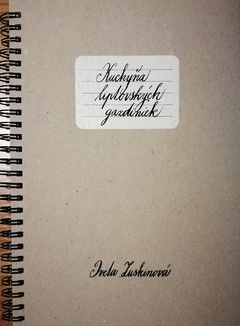 Kuchyňa
liptovských
gazdiniek
Iveta Zuskinová